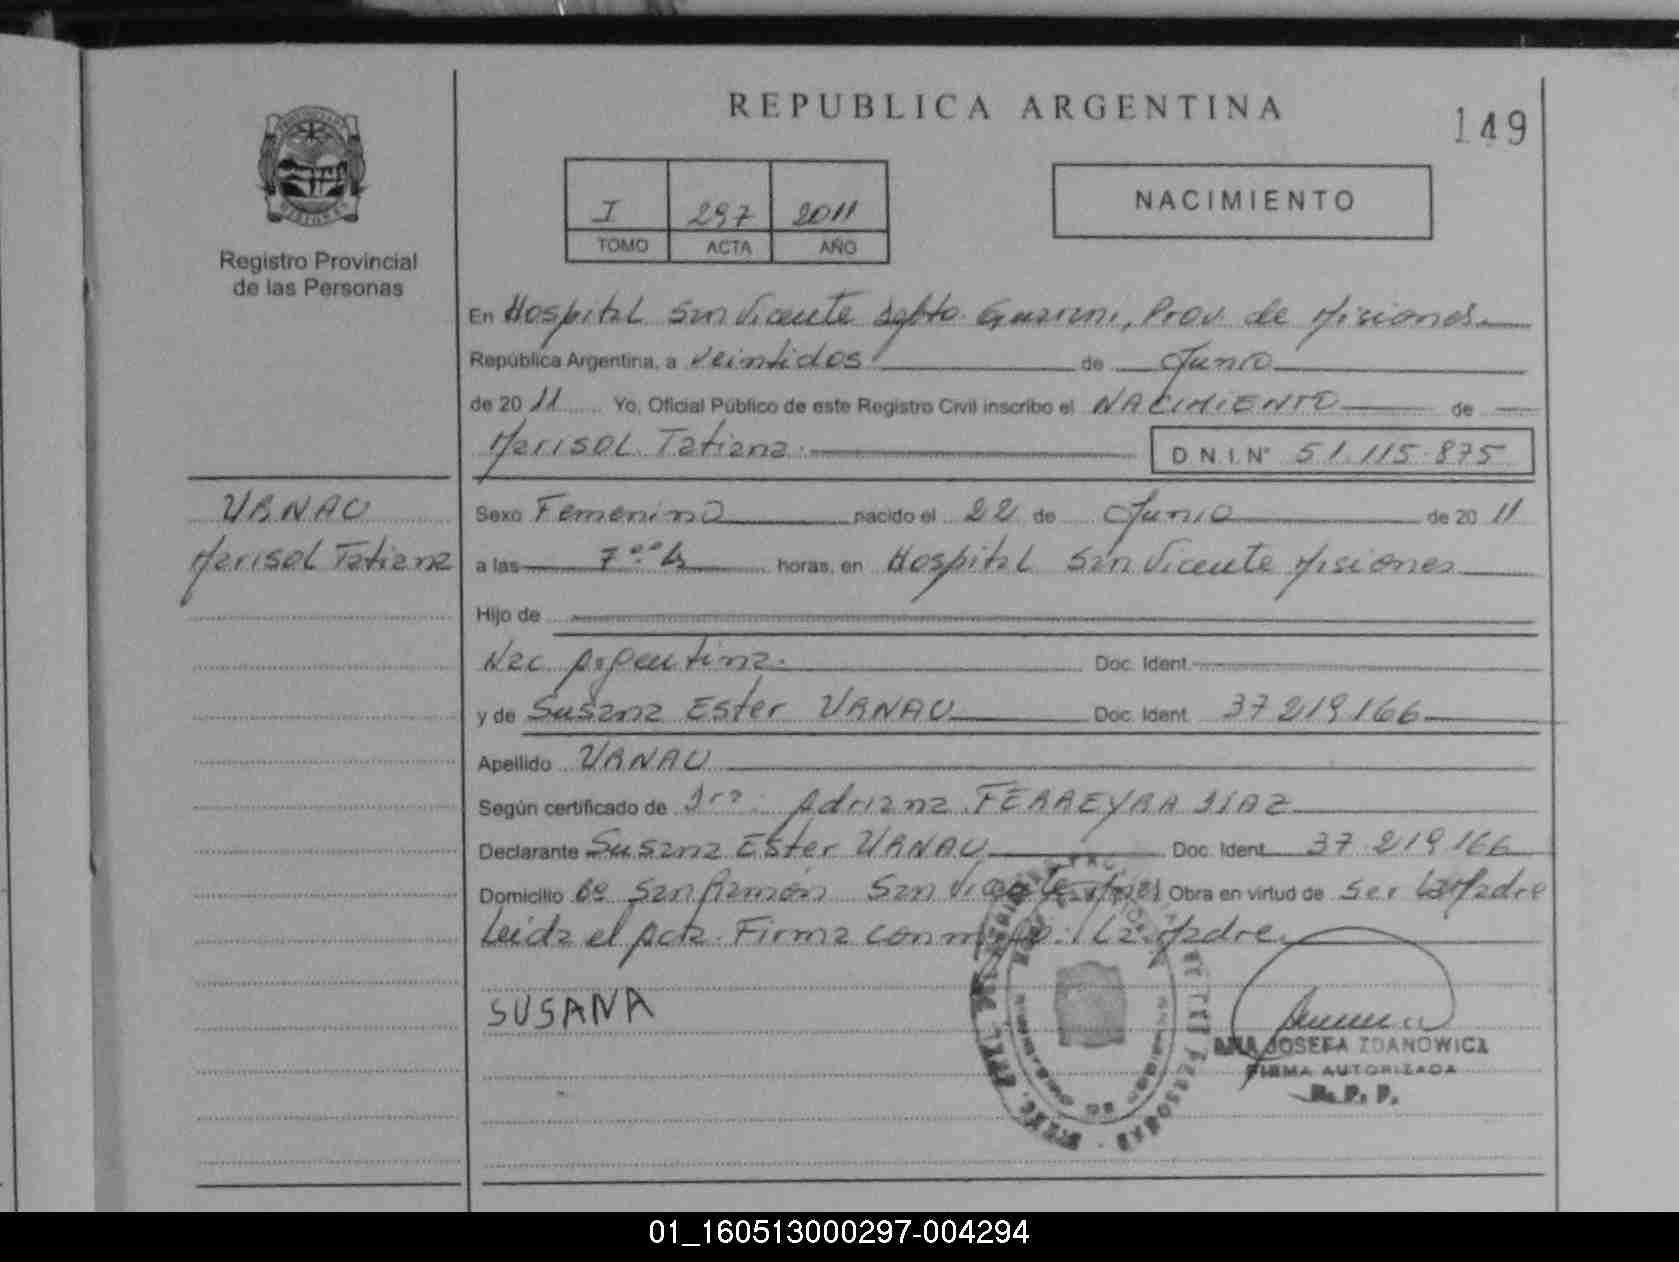 REPUBLICA ARGENTINA
149
Registro Provincial
de las Personas
I 297 2011
TOMO ACTA AÑO
NACIMIENTO
En Hospital San Vicente Dpto. Guarani, Prov. de Misiones
República Argentina, a Veintidos de Junio
de 20 11 Yo, Oficial Público de este Registro Civil inscribo el NACIMIENTO de
Marisol Tatiana. D N.I. N° 51.115.875
VANAU
Marisol Tatiana
Sexo Femenino nacido el 22 de Junio de 20 11
a las 7ºº h horas, en Hospital San Vicente Misiones
Hijo de
Nac Argentina. Doc. Ident.
y de Susana Ester VANAU Doc. Ident. 37 219 166
Apellido VANAU
Según certificado de Dra. Adriana FERREYRA DIAZ
Declarante Susana Ester VANAU Doc. Ident. 37 219 166
Domicilio Bº San Ramón San Vicente Obra en virtud de Ser La Madre
Leida el Acta. Firma conmigo. La Madre.
SUSANA
ANA JOSEFA ZDANOWICZ
FIRMA AUTORIZADA
R. P. P.
01_160513000297-004294